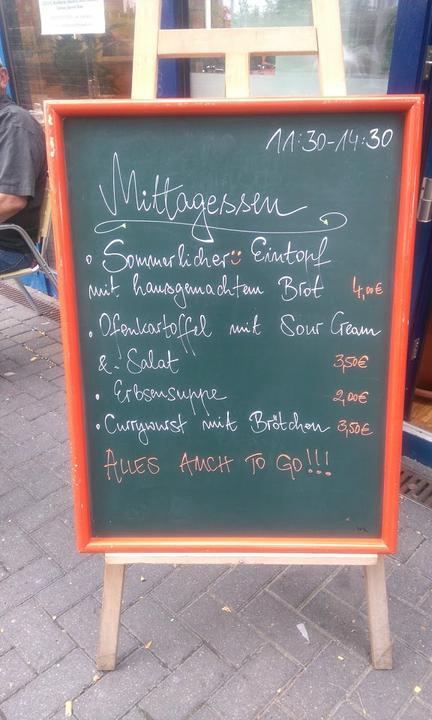 11:30-14:30
Mittagessen
• Sommerlicher Eintopf
mit hausgemachtem Brot 4,00€
• Ofenkartoffel mit Sour Cream
& Salat 3,50€
• Erbsensuppe 2,00€
• Currywurst mit Brötchen 3,50€
ALLES AUCH TO GO!!!